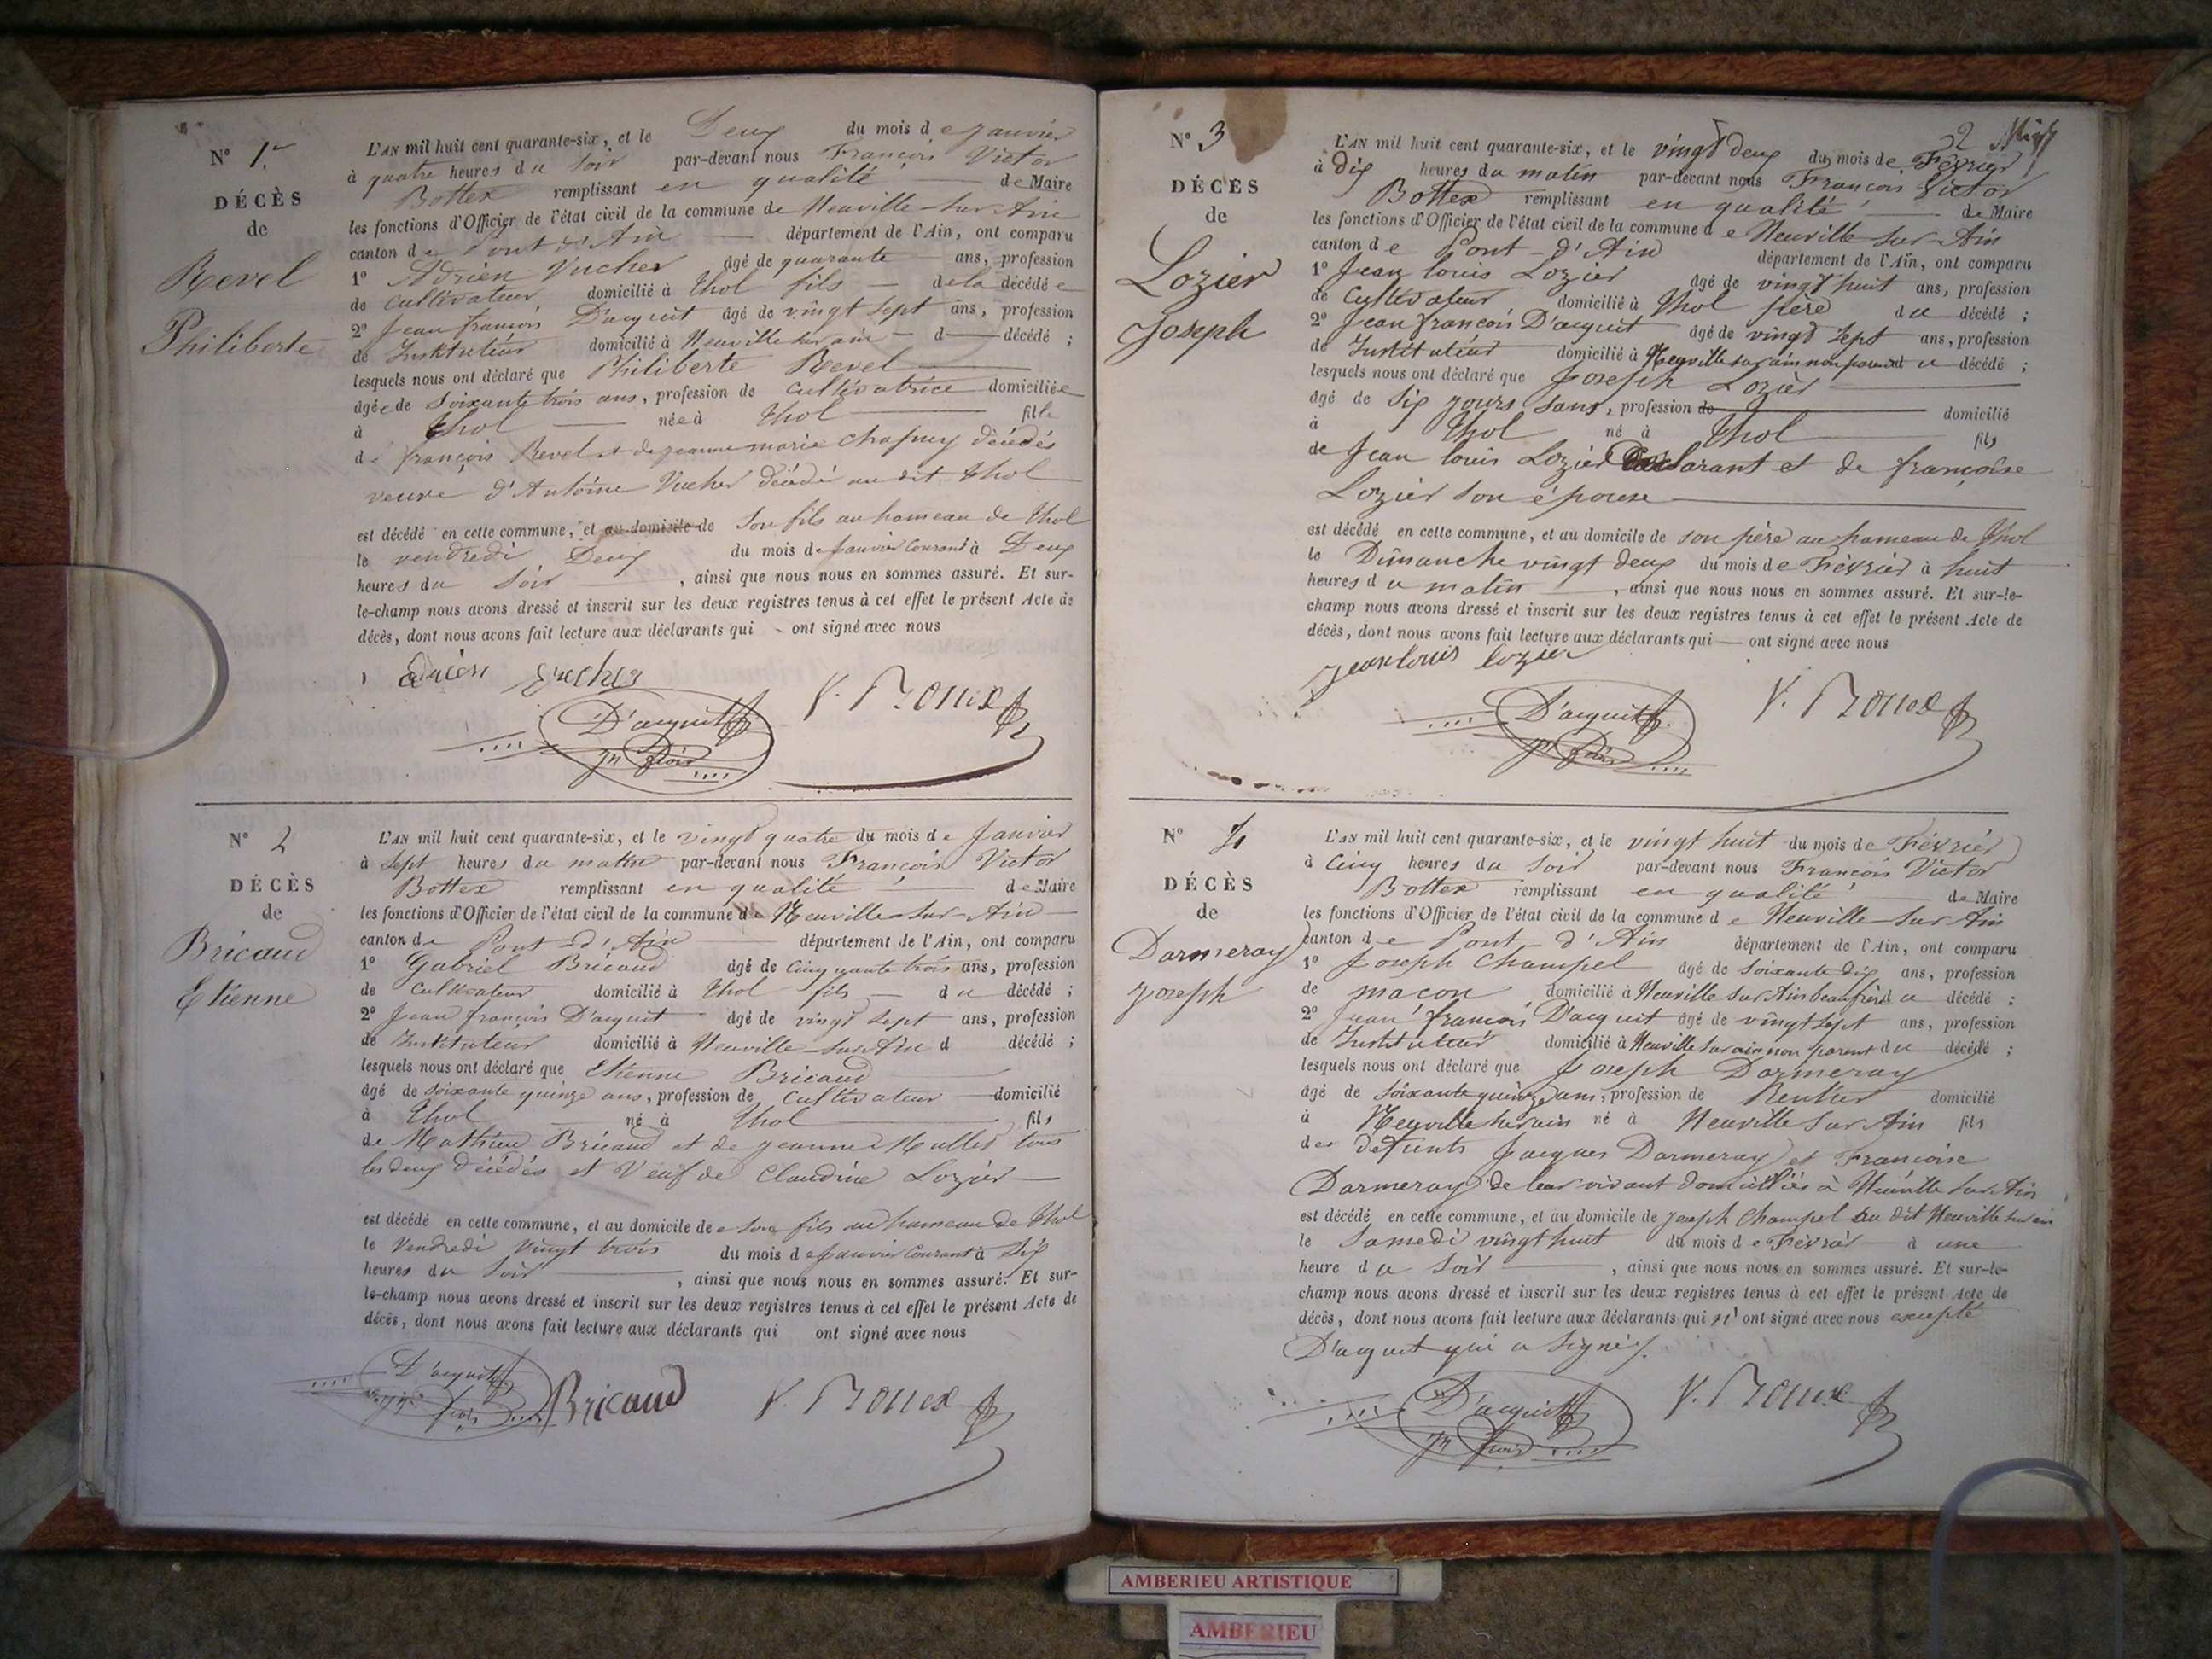 N° 1er
DÉCÈS
de
Revel
Philiberte
L'AN mil huit cent quarante-six, et le Deux du mois de Janvier
à quatre heures du soir par-devant nous François Victor
Bottex remplissant en qualité de Maire
les fonctions d'Officier de l'état civil de la commune de Neuville-sur-Ain
canton de Pont d'Ain département de l'Ain, ont comparu
1° Adrien Vucher âgé de quarante ans, profession
de cultivateur domicilié à Thol fils de la décédée
2° Jean françois D'acquit âgé de vingt sept ans, profession
de Instituteur domicilié à Neuville sur ain d décédé ;
lesquels nous ont déclaré que Philiberte Revel
âgée de soixante trois ans, profession de cultivatrice domiciliée
à Thol née à Thol fille
de françois Revel et de jeanne marie Chapuy décédés
veuve d'Antoine Vucher décédé au dit Thol
est décédé en cette commune, et au domicile de son fils au hameau de Thol
le vendredi Deux du mois de janvier courant à Deux
heures du soir , ainsi que nous nous en sommes assuré. Et sur-
le-champ nous avons dressé et inscrit sur les deux registres tenus à cet effet le présent Acte de
décès, dont nous avons fait lecture aux déclarants qui ont signé avec nous
vucher
D'acquit V. Bottex
jn fçois
N° 2
DÉCÈS
de
Bricaud
Etienne
L'AN mil huit cent quarante-six, et le vingt quatre du mois de Janvier
à sept heures du matin par-devant nous François Victor
Bottex remplissant en qualité de Maire
les fonctions d'Officier de l'état civil de la commune de Neuville-sur-Ain
canton de Pont-d'Ain département de l'Ain, ont comparu
1° Gabriel Bricaud âgé de cinquante trois ans, profession
de cultivateur domicilié à Thol fils du décédé ;
2° Jean françois D'acquit âgé de vingt sept ans, profession
de Instituteur domicilié à Neuville-sur-Ain d décédé ;
lesquels nous ont déclaré que Etienne Bricaud
âgé de soixante quinze ans, profession de cultivateur domicilié
à Thol né à Thol fils
de Mathieu Bricaud et de jeanne Mullet tous
les deux décédés et veuf de Claudine Lozier
est décédé en cette commune, et au domicile de son fils au hameau de Thol
le Vendredi vingt trois du mois de janvier courant à six
heures du soir , ainsi que nous nous en sommes assuré. Et sur-
le-champ nous avons dressé et inscrit sur les deux registres tenus à cet effet le présent Acte de
décès, dont nous avons fait lecture aux déclarants qui ont signé avec nous
D'acquit Bricaud V. Bottex
jn fçois
2
N° 3
DÉCÈS
de
Lozier
Joseph
L'AN mil huit cent quarante-six, et le vingt deux du mois de Février
à dix heures du matin par-devant nous François Victor
Bottex remplissant en qualité de Maire
les fonctions d'Officier de l'état civil de la commune de Neuville sur-Ain
canton de Pont-d'Ain département de l'Ain, ont comparu
1° Jean louis Lozier âgé de vingt huit ans, profession
de Cultivateur domicilié à Thol père du décédé ;
2° Jean françois D'acquit âgé de vingt sept ans, profession
de Instituteur domicilié à Neuville sur ain non parent du décédé ;
lesquels nous ont déclaré que Joseph Lozier
âgé de six jours sans, profession de domicilié
à Thol né à Thol fils
de Jean louis Lozier Déclarant et de françoise
Lozier son épouse
est décédé en cette commune, et au domicile de son père au hameau de Thol
le Dimanche vingt deux du mois de Février à huit
heures du matin , ainsi que nous nous en sommes assuré. Et sur-le-
champ nous avons dressé et inscrit sur les deux registres tenus à cet effet le présent Acte de
décès, dont nous avons fait lecture aux déclarants qui ont signé avec nous
jean louis lozier
D'acquit V. Bottex
jn fçois
N° 4
DÉCÈS
de
Darmeray
Joseph
L'AN mil huit cent quarante-six, et le vingt huit du mois de Février
à cinq heures du soir par-devant nous François Victor
Bottex remplissant en qualité de Maire
les fonctions d'Officier de l'état civil de la commune de Neuville-sur Ain
canton de Pont-d'Ain département de l'Ain, ont comparu
1° Joseph Champel âgé de soixante dix ans, profession
de maçon domicilié à Neuville sur Ain beaufrère du décédé ;
2° Jean françois D'acquit âgé de vingt sept ans, profession
de Instituteur domicilié à Neuville sur ain non parent du décédé ;
lesquels nous ont déclaré que Joseph Darmeray
âgé de soixante quinze ans, profession de Rentier domicilié
à Neuville sur ain né à Neuville sur Ain fils
des défunts Jacques Darmeray et Françoise
Darmeray de leur vivant domiciliés à Neuville sur Ain
est décédé en cette commune, et au domicile de joseph Champel au dit Neuville sur ain
le Samedi vingt huit du mois de Février à une
heure du soir , ainsi que nous nous en sommes assuré. Et sur-le-
champ nous avons dressé et inscrit sur les deux registres tenus à cet effet le présent Acte de
décès, dont nous avons fait lecture aux déclarants qui n'ont signé avec nous excepté
D'acquit qui a signé.
D'acquit V. Bottex
jn fçois
AMBERIEU ARTISTIQUE
AMBERIEU